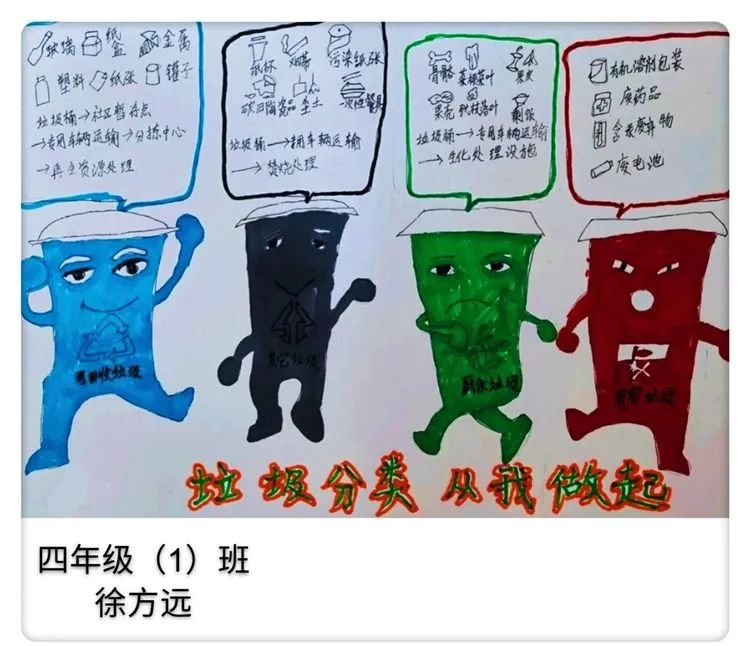 玻璃 纸盒 金属
塑料 纸张 罐子
垃圾桶→社区暂存点
→专用车辆运输→分拣中心
→再生资源处理
纸杯 烟蒂 污染纸张
破旧陶瓷品 尘土 一次性餐具
垃圾桶→专用车辆运输
→焚烧处理
骨骼 菜根菜叶 果皮
果壳 秋枝落叶 剩饭
垃圾桶→专用车辆运输
→生化处理设施
有机溶剂包装
废药品
含汞废弃物
废电池
可回收垃圾
其它垃圾
厨余垃圾
有害垃圾
垃圾分类 从我做起
四年级（1）班
徐方远